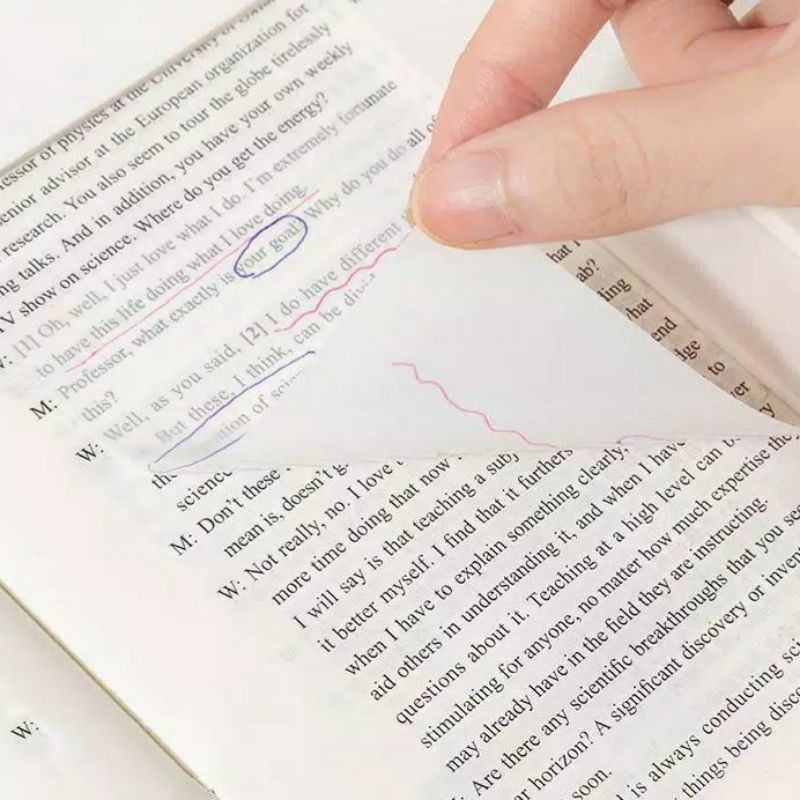 essor of physics at the University of
enior advisor at the European organization for
research. You also seem to tour the globe tirelessly
ng talks. And in addition, you have your own weekly
TV show on science. Where do you get the energy?
W: [1] Oh, well, I just love what I do. I'm extremely fortunate
to have this life doing what I love doing.
M: Professor, what exactly is your goal? Why do you do all of
this?
W: Well, as you said, [2] I do have different
But these, I think, can be divi
ation of scie
the
science
M: Don't these
mean is, doesn't
W: Not really, no. I love
more time doing that now
I will say is that teaching a subj
it better myself. I find that it furthers
when I have to explain something clearly,
aid others in understanding it, and when I have
questions about it. Teaching at a high level can b
stimulating for anyone, no matter how much expertise the
may already have in the field they are instructing.
: Are there any scientific breakthroughs that you se
ar horizon? A significant discovery or inven
soon.
is always conducting sci
things being disc
hat
ab?
ling
hat
end
dge
to
ver
ty
W: